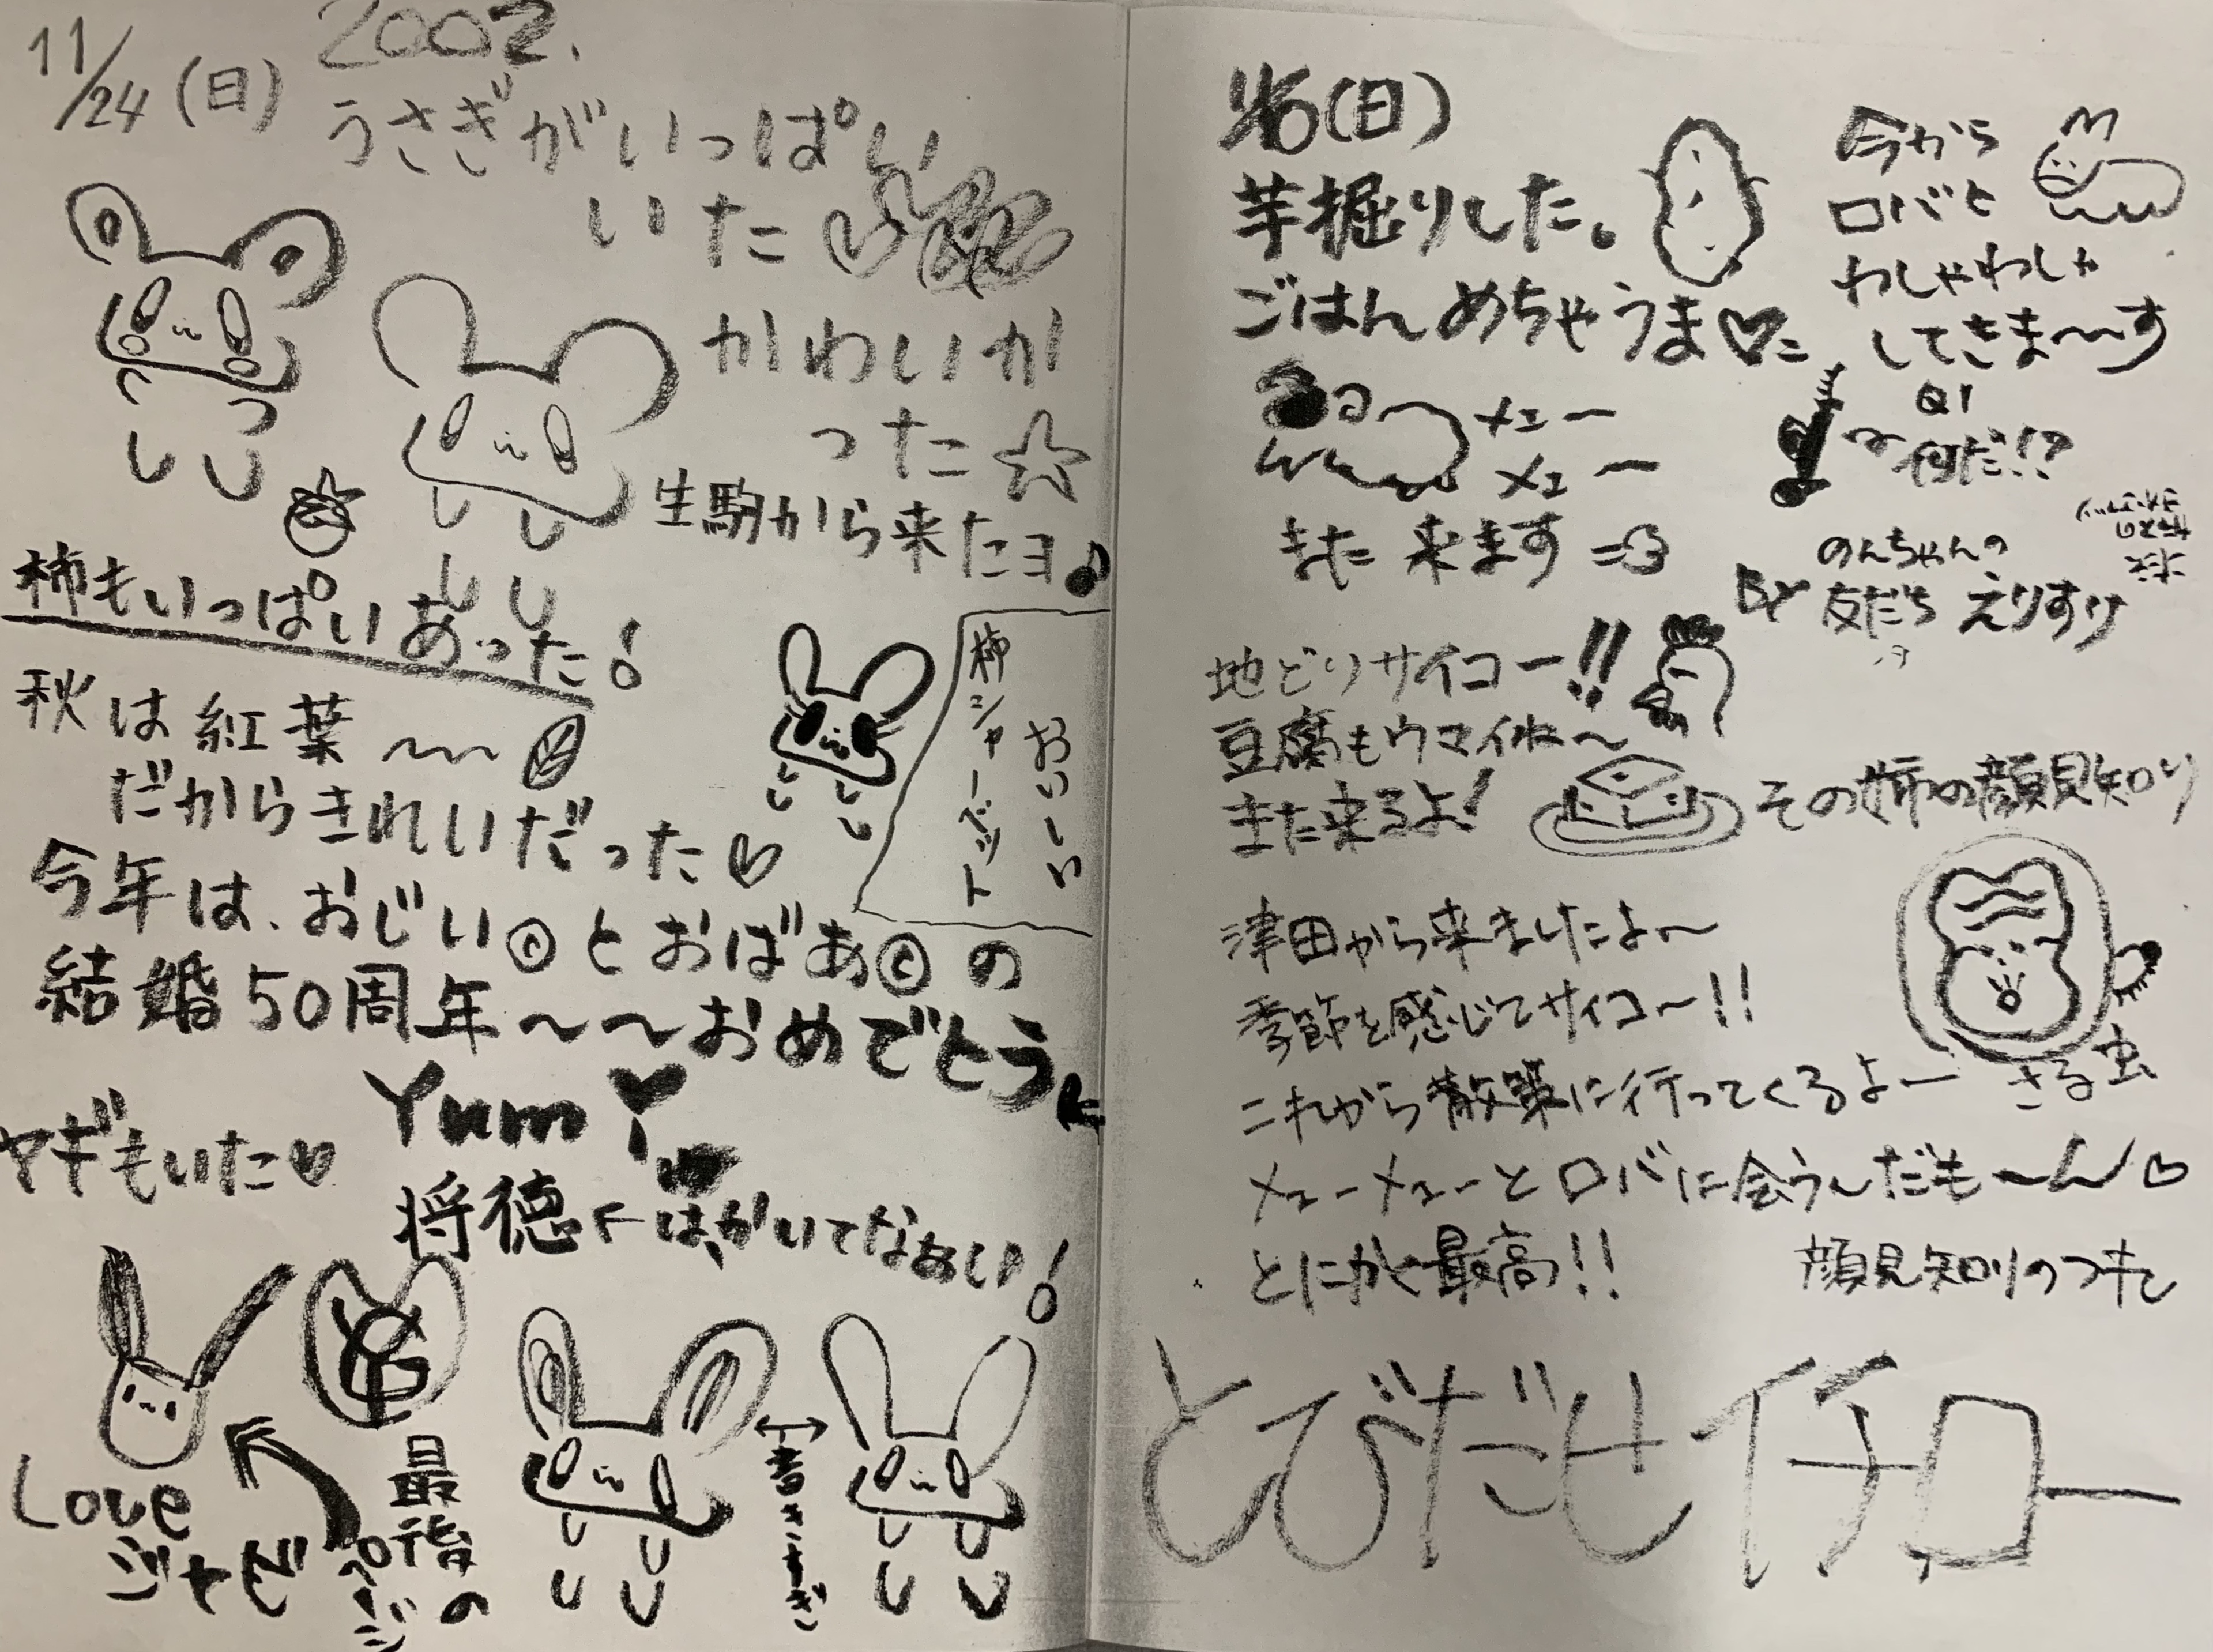 11/24(日) 2002.
うさぎがいっぱい
いた
かわいか
った☆
生駒から来たヨ♪
柿もいっぱいあった!
秋は紅葉〜〜
だからきれいだった♡
おいしい
柿シャーベット
今年は、おじい©とおばあ©の
結婚50周年〜〜おめでとう
Yum
ヤギもいた♡
将徳←は、かいてなぁい!
Love
ジャビ
最後の
ページ
書きすぎ
(日)
芋掘りした。
ごはんめちゃうま♡
メェー
メェー
また来ます
今から
ロバと
わしゃわしゃ
してきま〜〜す
Q1
何だ!?
のんちゃんの
By 友だち えりすけ
地どりサイコー!!
豆腐もウマイね〜
また来るよ!
その姉の顔見知り
津田から来ましたよ〜
季節を感じてサイコ〜!!
これから散策に行ってくるよー
さる虫
メェーメェーとロバに会うんだも〜ん♡
とにかく最高!!
顔見知りのつれ
とびだせイチロー